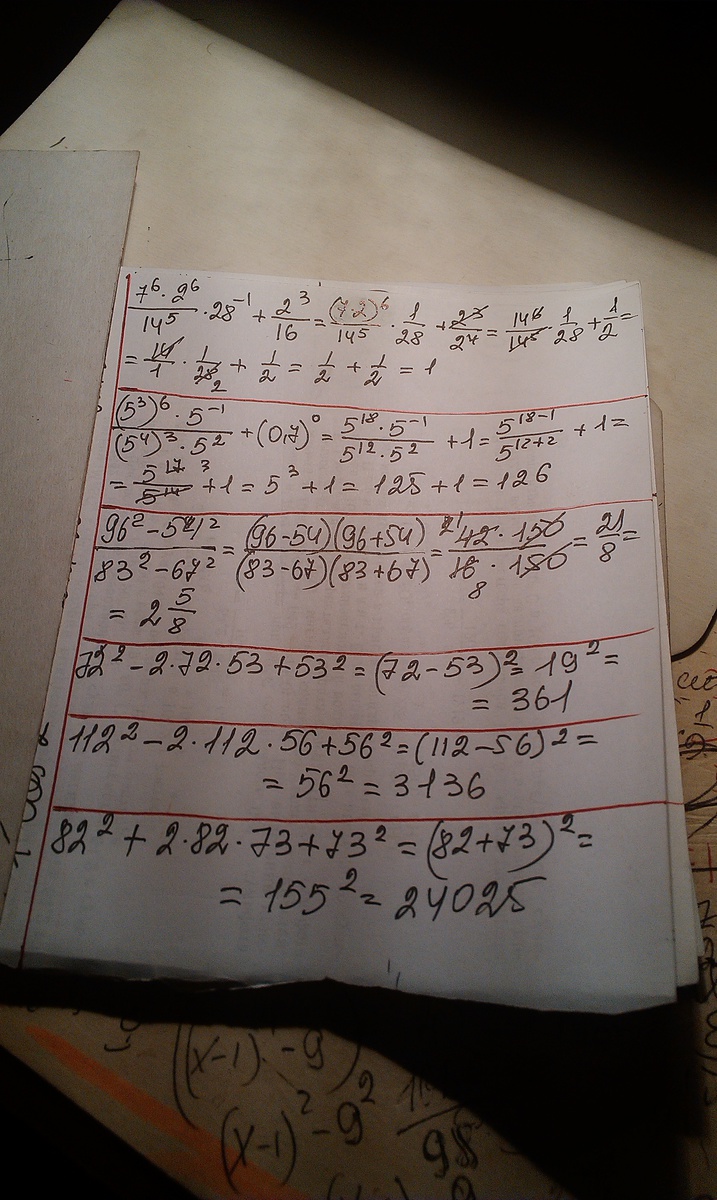 7⁶·2⁶/14⁵ · 28⁻¹ + 2³/16 = (7·2)⁶/14⁵ · 1/28 + 2³/2⁴ = 14⁶/14⁵ · 1/28 + 1/2 =
= 14/1 · 1/28 2 + 1/2 = 1/2 + 1/2 = 1
(5³)⁶·5⁻¹/(5⁴)³·5² + (0,7)⁰ = 5¹⁸·5⁻¹/5¹²·5² + 1 = 5¹⁸⁻¹/5¹²⁺² + 1 =
= 5¹⁷ ³/5¹⁴ + 1 = 5³ + 1 = 125 + 1 = 126
96² - 54²/83² - 67² = (96-54)(96+54)/(83-67)(83+67) = 21 42·150/16 8·150 = 21/8 =
= 2 5/8
72² - 2·72·53 + 53² = (72-53)² = 19² =
= 361
112² - 2·112·56 + 56² = (112-56)² =
= 56² = 3136
82² + 2·82·73 + 73² = (82+73)² =
= 155² = 24025
(x-1) - 9
(x-1)² - 9²
98